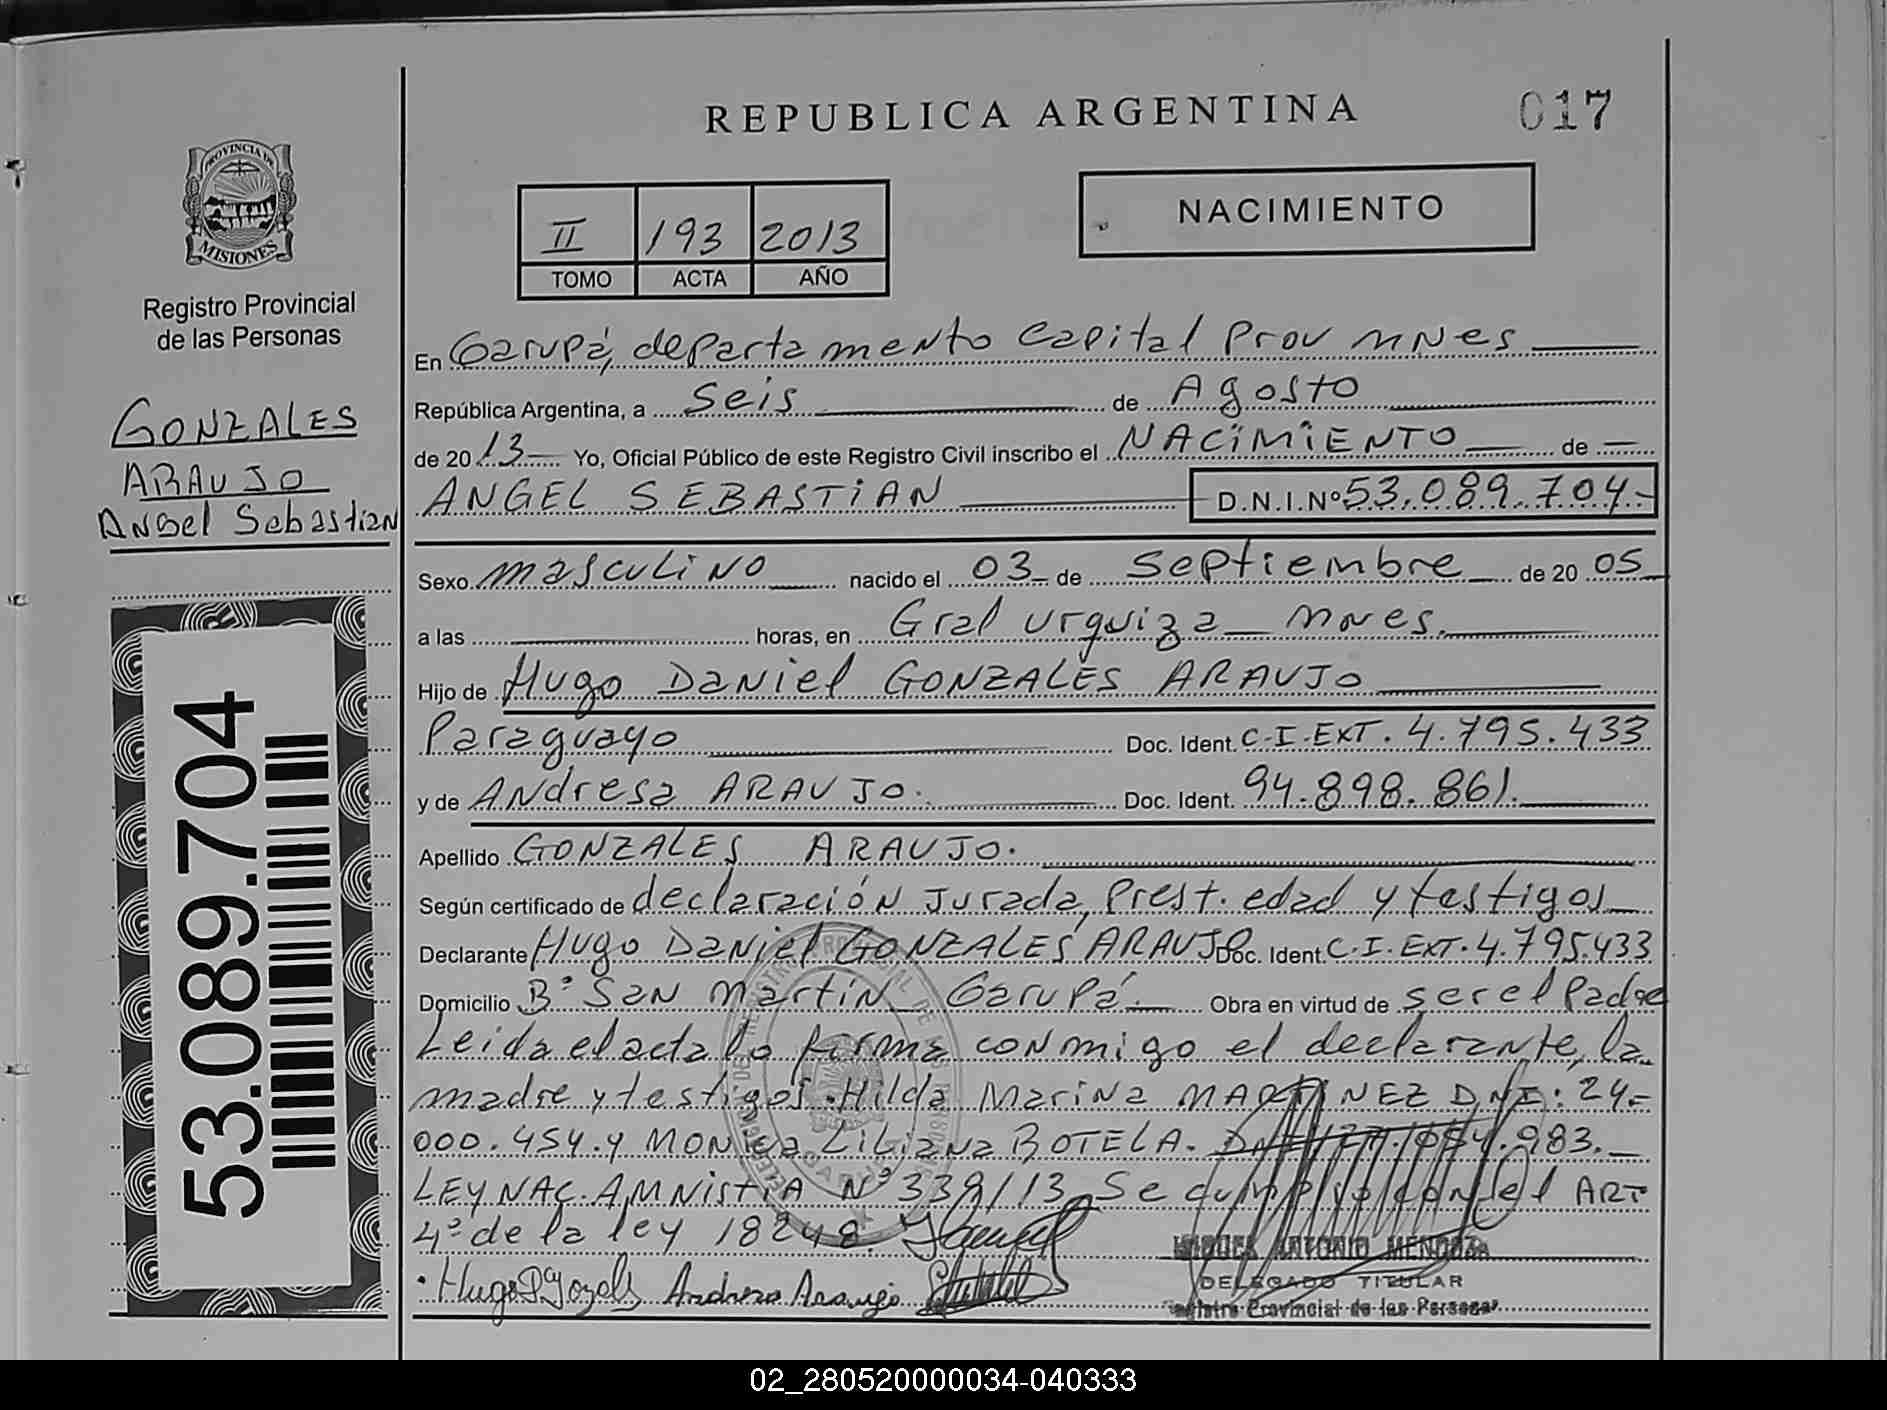 REPUBLICA ARGENTINA
017
PROVINCIA DE
MISIONES
Registro Provincial
de las Personas
II 193 2013
TOMO ACTA AÑO
NACIMIENTO
GONZALES
ARAUJO
Angel Sebastian
53.089.704
En Garupá, departamento Capital Prov Mnes
República Argentina, a seis de Agosto
de 2013 Yo, Oficial Público de este Registro Civil inscribo el NACIMIENTO de
ANGEL SEBASTIAN D.N.I.Nº 53.089.704.-
Sexo masculino nacido el 03 de Septiembre de 2005
a las horas, en Gral Urquiza Mnes.
Hijo de Hugo Daniel GONZALES ARAUJO
Paraguayo Doc. Ident. C.I.EXT. 4.795.433
y de Andresa ARAUJO. Doc. Ident. 94.898.861.
Apellido GONZALES ARAUJO.
Según certificado de declaración Jurada, Prest. edad y testigos
Declarante Hugo Daniel GONZALES ARAUJO Doc. Ident C.I.EXT. 4.795.433
Domicilio Bº San Martín Garupá. Obra en virtud de ser el Padre
Leida el acta lo firma conmigo el declarante, la
madre y testigos. Hilda Marina MARTINEZ DNI: 24.-
000.454. y MONICA Liliana BOTELA. DNI 983.
LEY NAC. AMNistIA Nº 339/13 Se cumplio con el ART
4º de la ley 18248.
Andresa Araujo
MIGUEL ANTONIO MENDOZA
DELEGADO TITULAR
Registro Provincial de las Personas
02_280520000034-040333